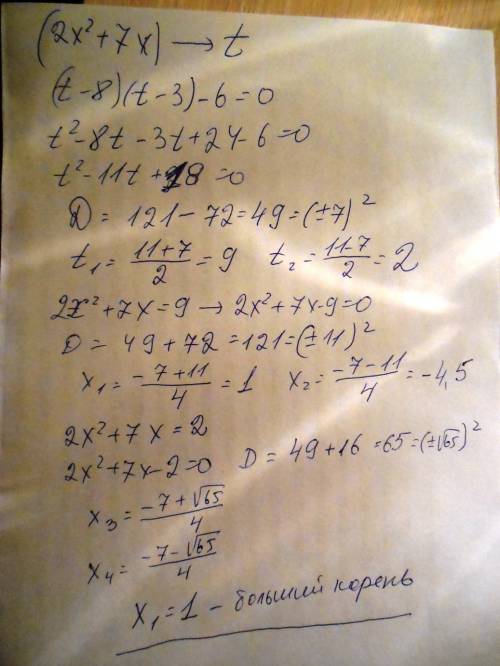 (2x²+7x) → t
(t-8)(t-3)-6=0
t²-8t-3t+24-6=0
t²-11t+18=0
D = 121-72=49=(±7)²
t₁ = (11+7)/2 = 9   t₂ = (11-7)/2 = 2
2x²+7x=9 → 2x²+7x-9=0
D = 49+72=121=(±11)²
x₁ = (-7+11)/4 = 1   x₂ = (-7-11)/4 = -4,5
2x²+7x=2
2x²+7x-2=0   D = 49+16=65=(±√65)²
x₃ = (-7+√65)/4
x₄ = (-7-√65)/4
x₁=1 - больший корень